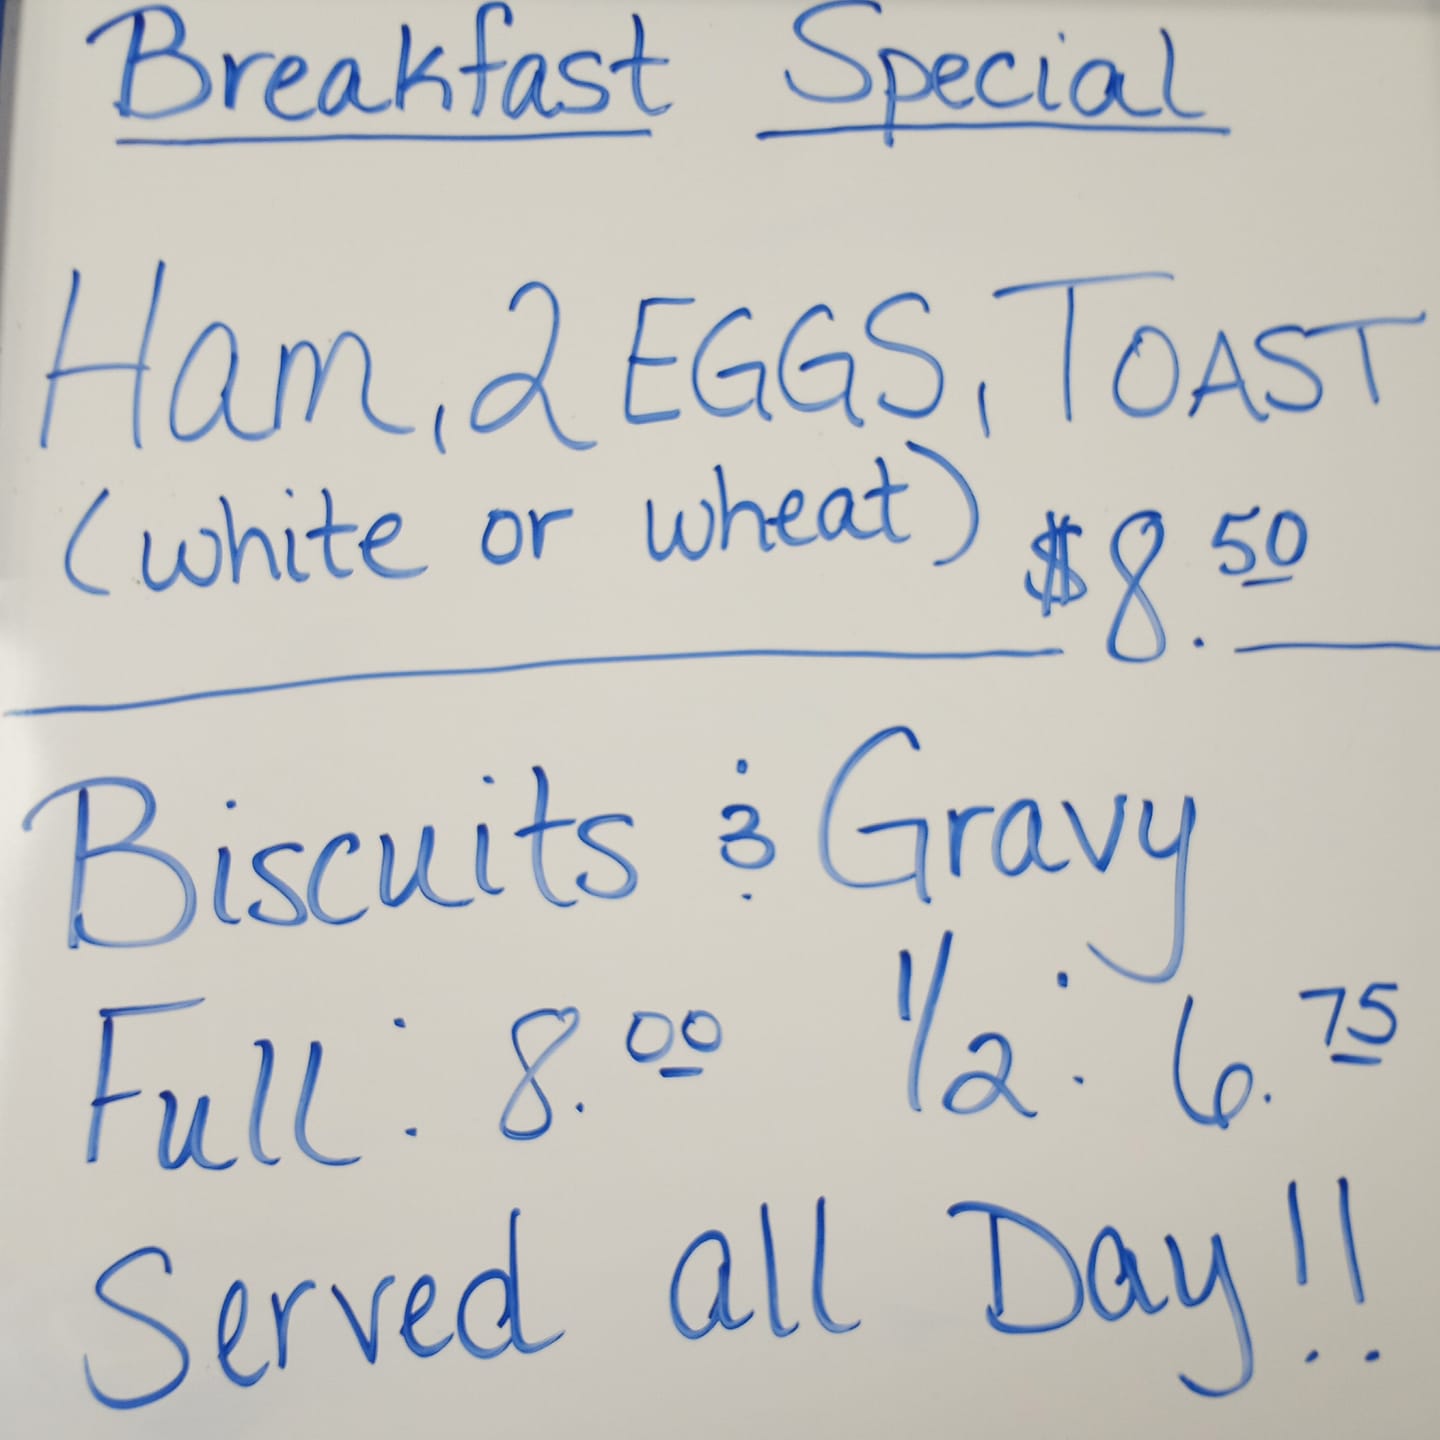 Breakfast Special
Ham, 2 EGGS, TOAST
(white or wheat) $8.50
Biscuits & Gravy
Full: 8.00 1/2: 6.75
Served all Day!!